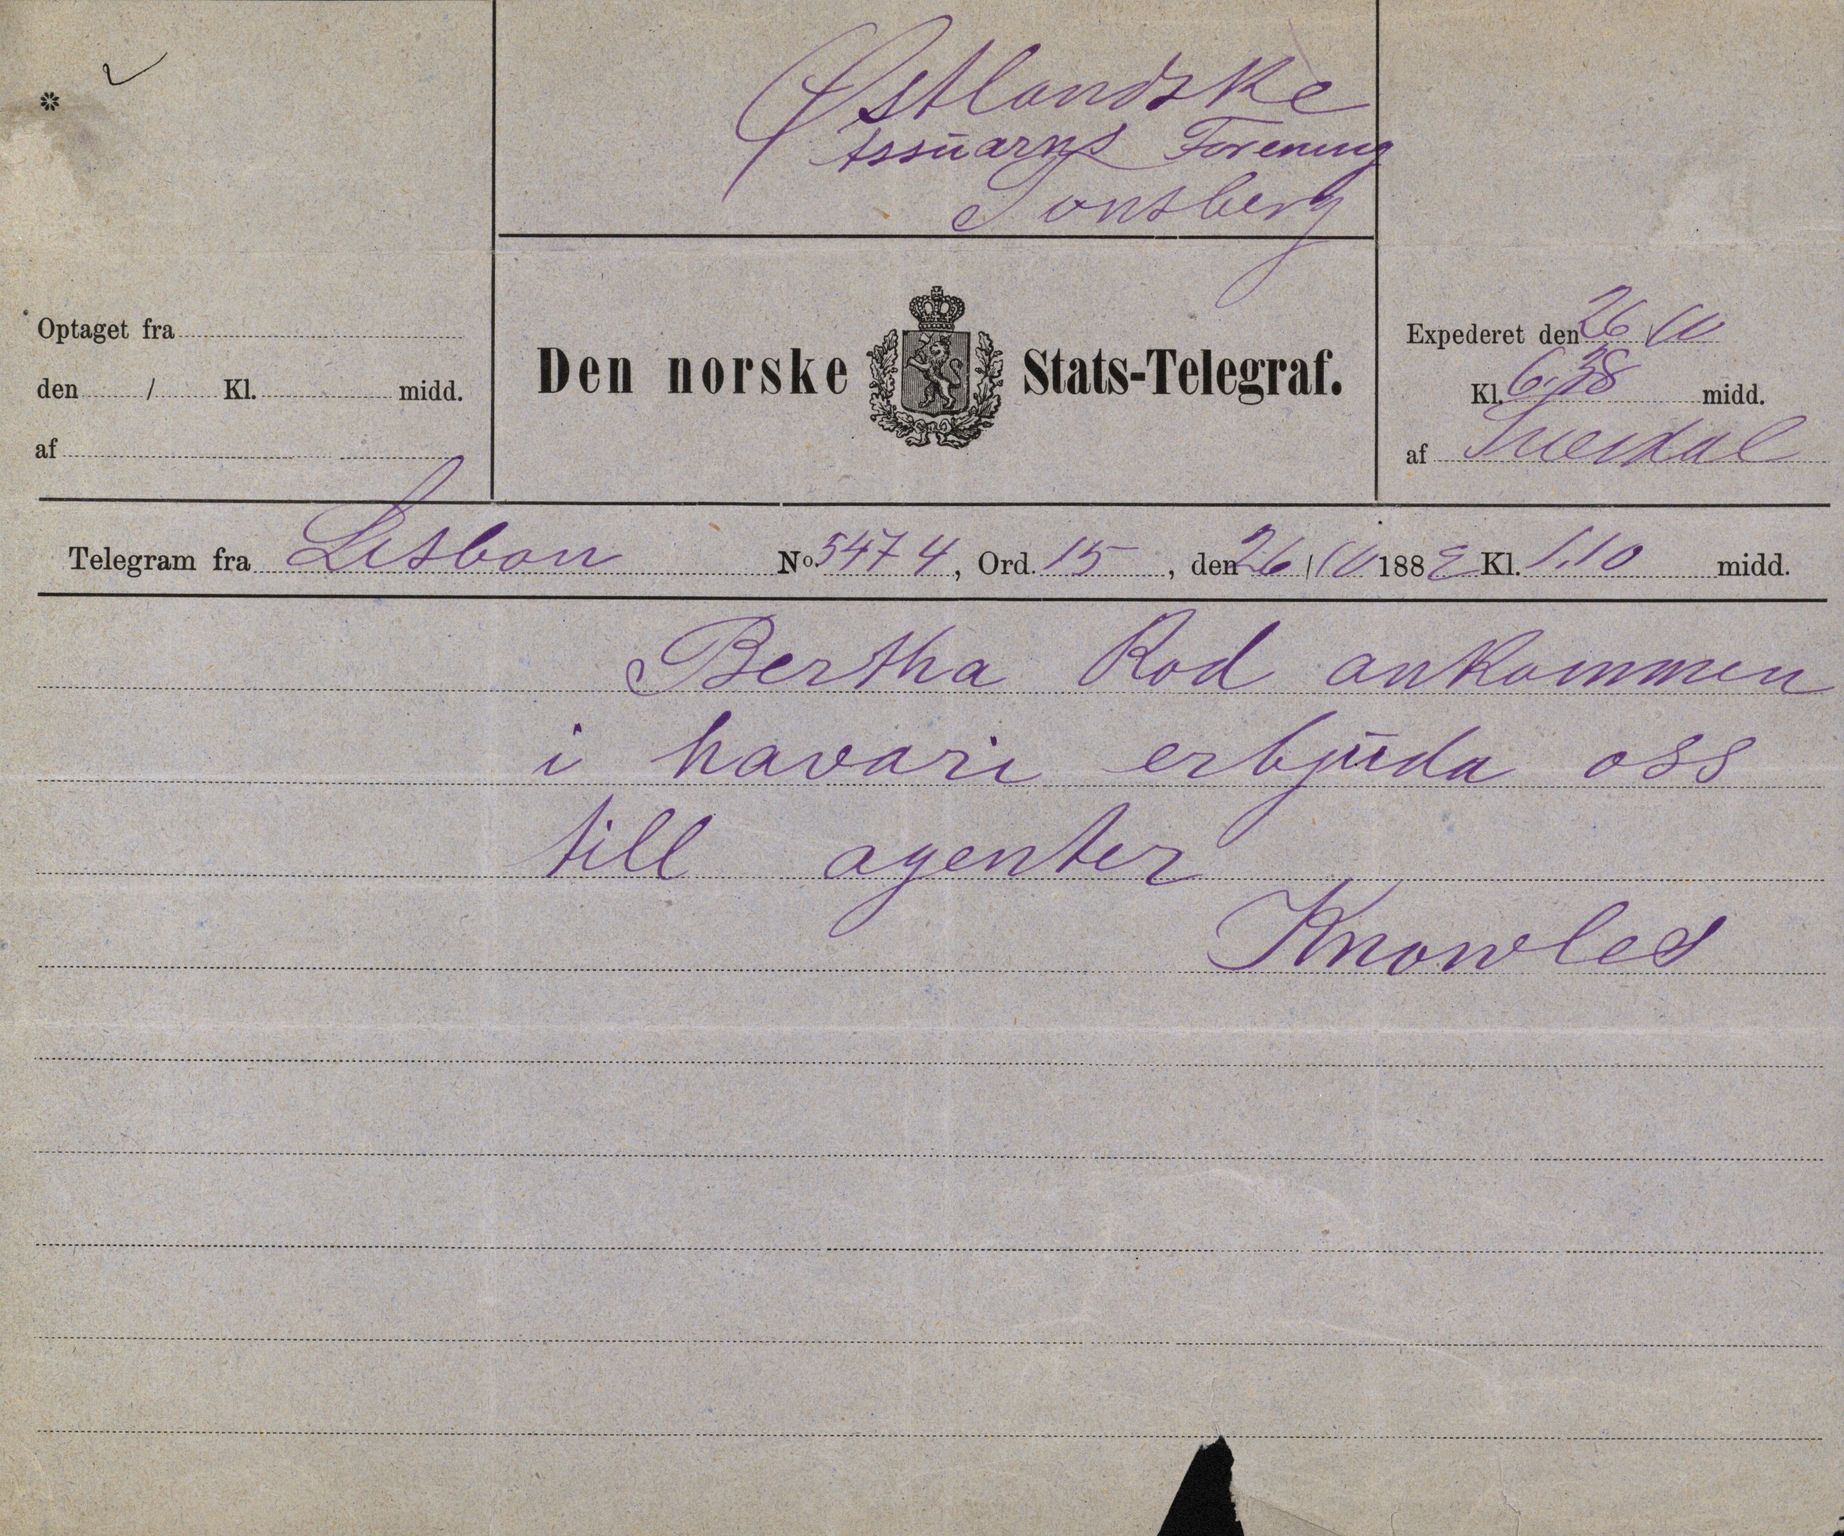 Østlandske
Assuarns Forening
Tonsberg
Optaget fra
den / Kl. midd.
af
Den norske Stats-Telegraf.
Expederet den 26/10
Kl. 6.38 midd.
af
Telegram fra Lisbon No. 5474, Ord. 15, den 26/10 1882 Kl. 1.10 midd.
Bertha Rod ankommen
i havari erbjuda oss
till agenter
Knowles